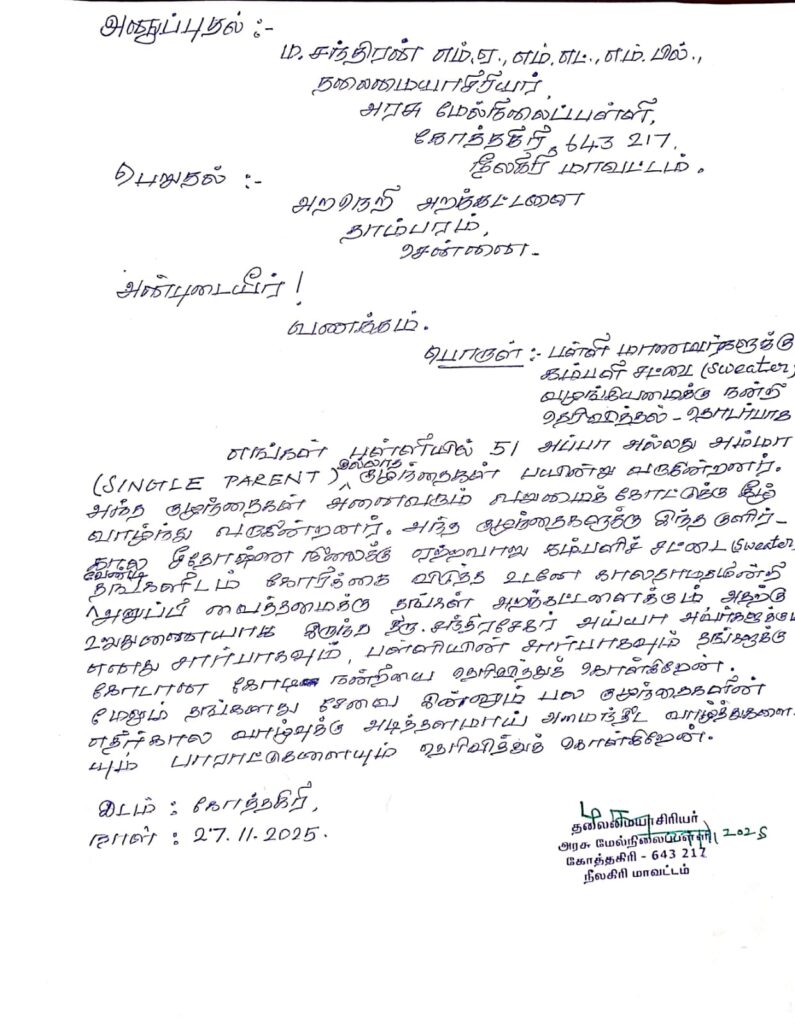 அனுப்புதல் :-
ம. சந்திரன் எம்.ஏ., எம்.எட்., எம்.பில்.,
தலைமையாசிரியர்,
அரசு மேல்நிலைப்பள்ளி,
கோத்தகிரி, 643 217.
நீலகிரி மாவட்டம்.
பெறுதல் :-
அறநெறி அறக்கட்டளை
தாம்பரம்,
சென்னை-
அன்புடையீர் !
வணக்கம்.
பொருள் :- பள்ளி மாணவர்களுக்கு
கம்பளி சட்டை (Sweater)
வழங்கியமைக்கு நன்றி
தெரிவித்தல் - தொடர்பாக
எங்கள் பள்ளியில் 51 அப்பா அல்லது அம்மா
(SINGLE PARENT) இல்லாத குழந்தைகள் பயின்று வருகின்றனர்.
அந்த குழந்தைகள் அனைவரும் வறுமைக் கோட்டுக்கு கீழ்
வாழ்ந்து வருகின்றனர். அந்த குழந்தைகளுக்கு இந்த குளிர்-
கால சீதோஷ்ண நிலைக்கு ஏற்றவாறு கம்பளிச் சட்டை (Sweater)
வேண்டி தங்களிடம் கோரிக்கை விடுத்த உடனே காலதாமதமின்றி
அனுப்பி வைத்தமைக்கு தங்கள் அறக்கட்டளைக்கும் அதற்கு
உறுதுணையாக இருந்த திரு. சந்திரசேகர் அய்யா அவர்களுக்கும்
எனது சார்பாகவும், பள்ளியின் சார்பாகவும் தங்களுக்கு
கோடான கோடி நன்றியை தெரிவித்துக் கொள்கிறேன்.
மேலும் தங்களது சேவை இன்னும் பல குழந்தைகளின்
எதிர்கால வாழ்வுக்கு அடித்தளமாய் அமைந்திட வாழ்த்துகளை-
யும் பாராட்டுகளையும் தெரிவித்துக் கொள்கிறேன்.
இடம் : கோத்தகிரி,
நாள் : 27.11.2025.
தலைமையாசிரியர்
அரசு மேல்நிலைப்பள்ளி
கோத்தகிரி - 643 217
நீலகிரி மாவட்டம்